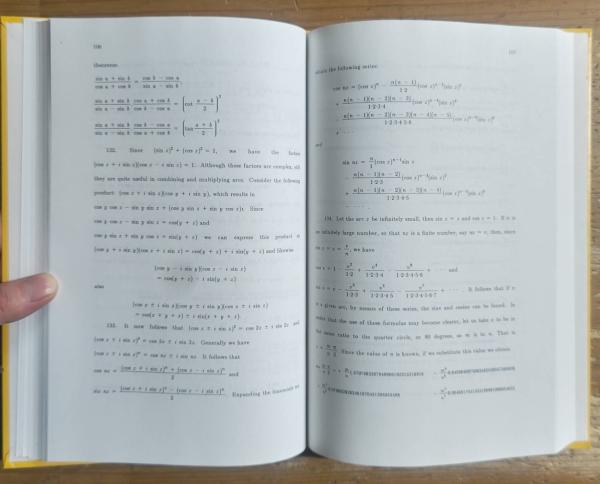 106
theorems:
\frac{\sin a + \sin b}{\cos a + \cos b} = \frac{\cos b - \cos a}{\sin a - \sin b}
\frac{\sin a + \sin b}{\sin a - \sin b} \cdot \frac{\cos a + \cos b}{\cos b - \cos a} = \left(\cot \frac{a - b}{2}\right)^2
\frac{\sin a + \sin b}{\sin a - \sin b} \cdot \frac{\cos b - \cos a}{\cos a + \cos b} = \left(\tan \frac{a + b}{2}\right)^2
132. Since (sin z)^2 + (cos z)^2 = 1, we have the factors
(cos z + i sin z)(cos z − i sin z) = 1. Although these factors are complex, still
they are quite useful in combining and multiplying arcs. Consider the following
product: (cos z + i sin z)(cos y + i sin y), which results in
cos y cos z − sin y sin z + (cos y sin z + sin y cos z)i. Since
cos y cos z − sin y sin z = cos(y + z) and
cos y sin z + sin y cos z = sin(y + z) we can express this product as
(cos y + i sin y)(cos z + i sin z) = cos(y + z) + i sin(y + z) and likewise
(cos y − i sin y)(cos z − i sin z)
= cos(y + z) − i sin(y + z)
also
(cos x ± i sin x)(cos y ± i sin y)(cos z ± i sin z)
= cos(x + y + z) ± i sin(x + y + z).
133. It now follows that (cos z ± i sin z)^2 = cos 2z ± i sin 2z and
(cos z ± i sin z)^3 = cos 3z ± i sin 3z. Generally we have
(cos z ± i sin z)^n = cos nz ± i sin nz. It follows that
cos nz = \frac{(cos z + i sin z)^n + (cos z − i sin z)^n}{2} and
sin nz = \frac{(cos z + i sin z)^n − (cos z − i sin z)^n}{2}. Expanding the binomials we
107
obtain the following series:
cos nz = (cos z)^n − \frac{n(n − 1)}{1·2}(cos z)^{n−2}(sin z)^2
+ \frac{n(n − 1)(n − 2)(n − 3)}{1·2·3·4}(cos z)^{n−4}(sin z)^4
− \frac{n(n − 1)(n − 2)(n − 3)(n − 4)(n − 5)}{1·2·3·4·5·6}(cos z)^{n−6}(sin z)^6
+ · · ·
and
sin nz = \frac{n}{1}(cos z)^{n−1} sin z
− \frac{n(n − 1)(n − 2)}{1·2·3}(cos z)^{n−3}(sin z)^3
+ \frac{n(n − 1)(n − 2)(n − 3)(n − 4)}{1·2·3·4·5}(cos z)^{n−5}(sin z)^5
134. Let the arc z be infinitely small, then sin z = z and cos z = 1. If n is
an infinitely large number, so that nz is a finite number, say nz = v, then, since
sin z = z = \frac{v}{n}, we have
cos v = 1 − \frac{v^2}{1·2} + \frac{v^4}{1·2·3·4} − \frac{v^6}{1·2·3·4·5·6} + · · · and
sin v = v − \frac{v^3}{1·2·3} + \frac{v^5}{1·2·3·4·5} − \frac{v^7}{1·2·3·4·5·6·7} + · · · . It follows that if v
is a given arc, by means of these series, the sine and cosine can be found. In
order that the use of these formulas may become clearer, let us take v to be in
the same ratio to the quarter circle, or 90 degrees, as m is to n. That is
v = \frac{m}{n} \frac{π}{2}. Since the value of π is known, if we substitute this value we obtain